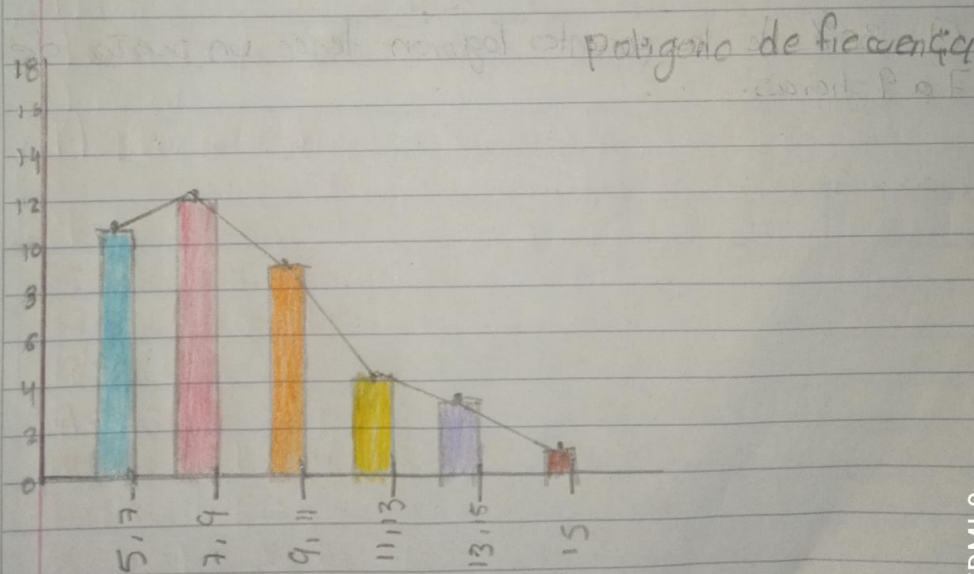 poligono de fiecuencia
18
16
14
12
10
8
6
4
2
0
5,7
7,9
9,11
11,13
13,15
15